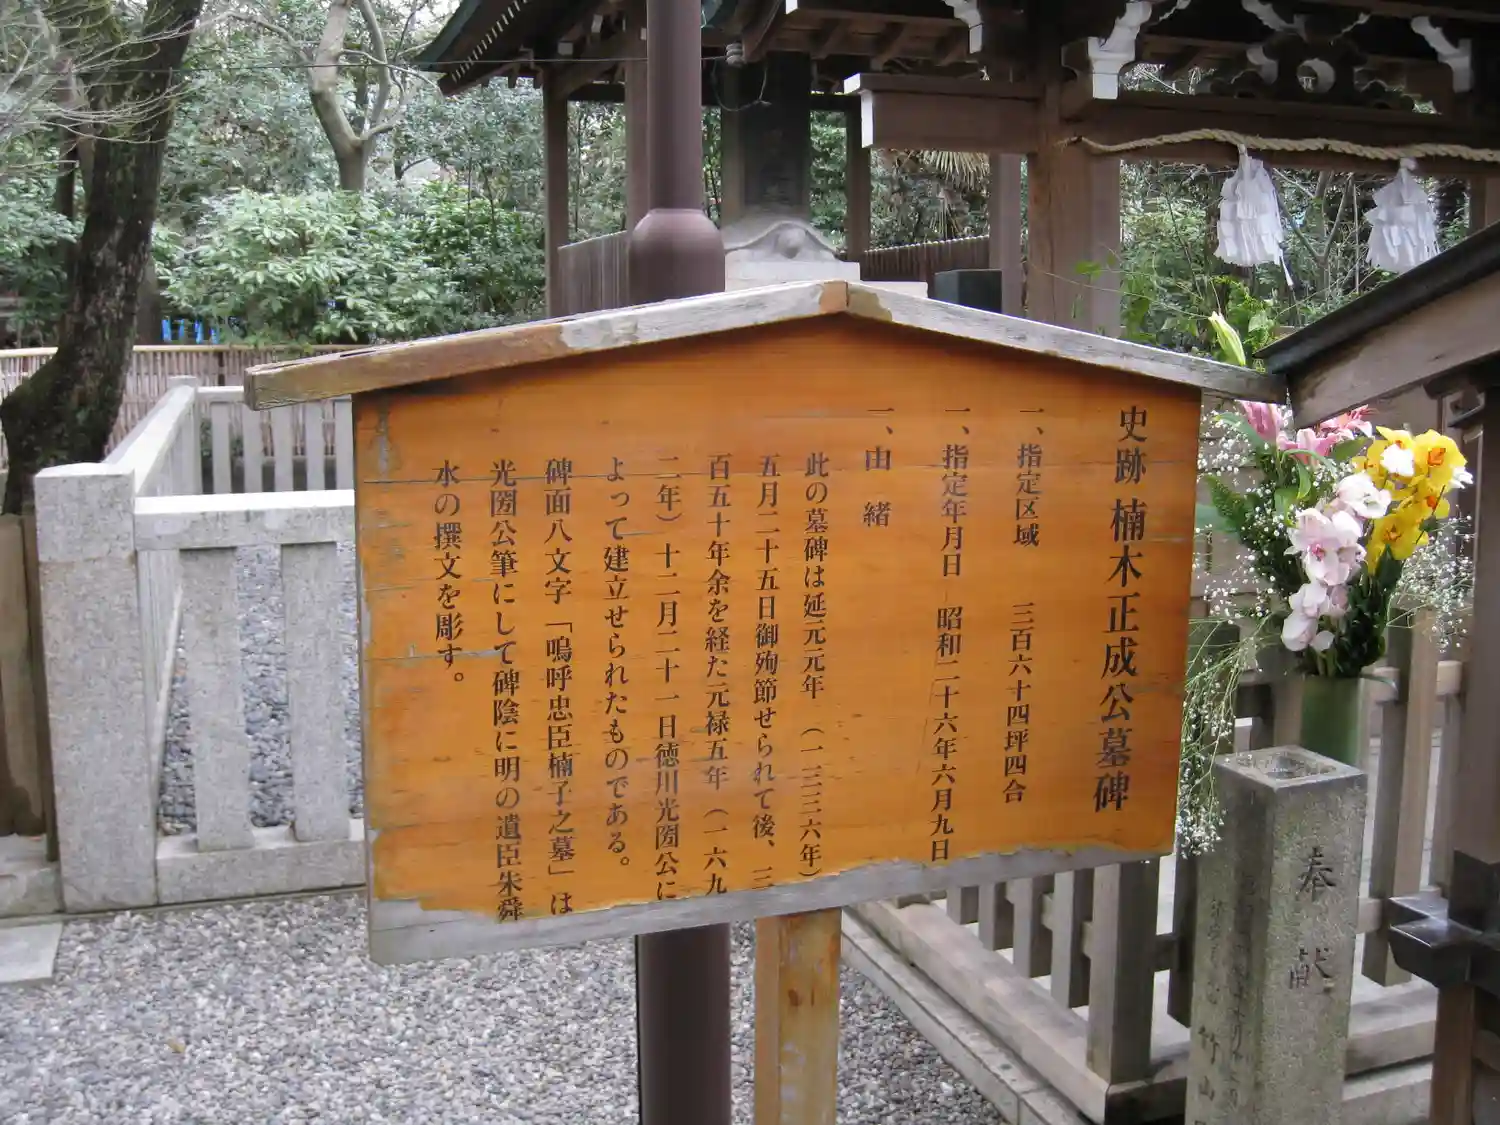 史跡 楠木正成公墓碑
一、指定区域 三百六十四坪四合
一、指定年月日 昭和二十六年六月九日
一、由緒
此の墓碑は延元元年(一三三六年)
五月二十五日御殉節せられて後、三
百五十年余を経た元禄五年(一六九
二年)十二月二十一日徳川光圀公に
よって建立せられたものである。
碑面八文字「嗚呼忠臣楠子之墓」は
光圀公筆にして碑陰に明の遺臣朱舜
水の撰文を彫す。
奉献